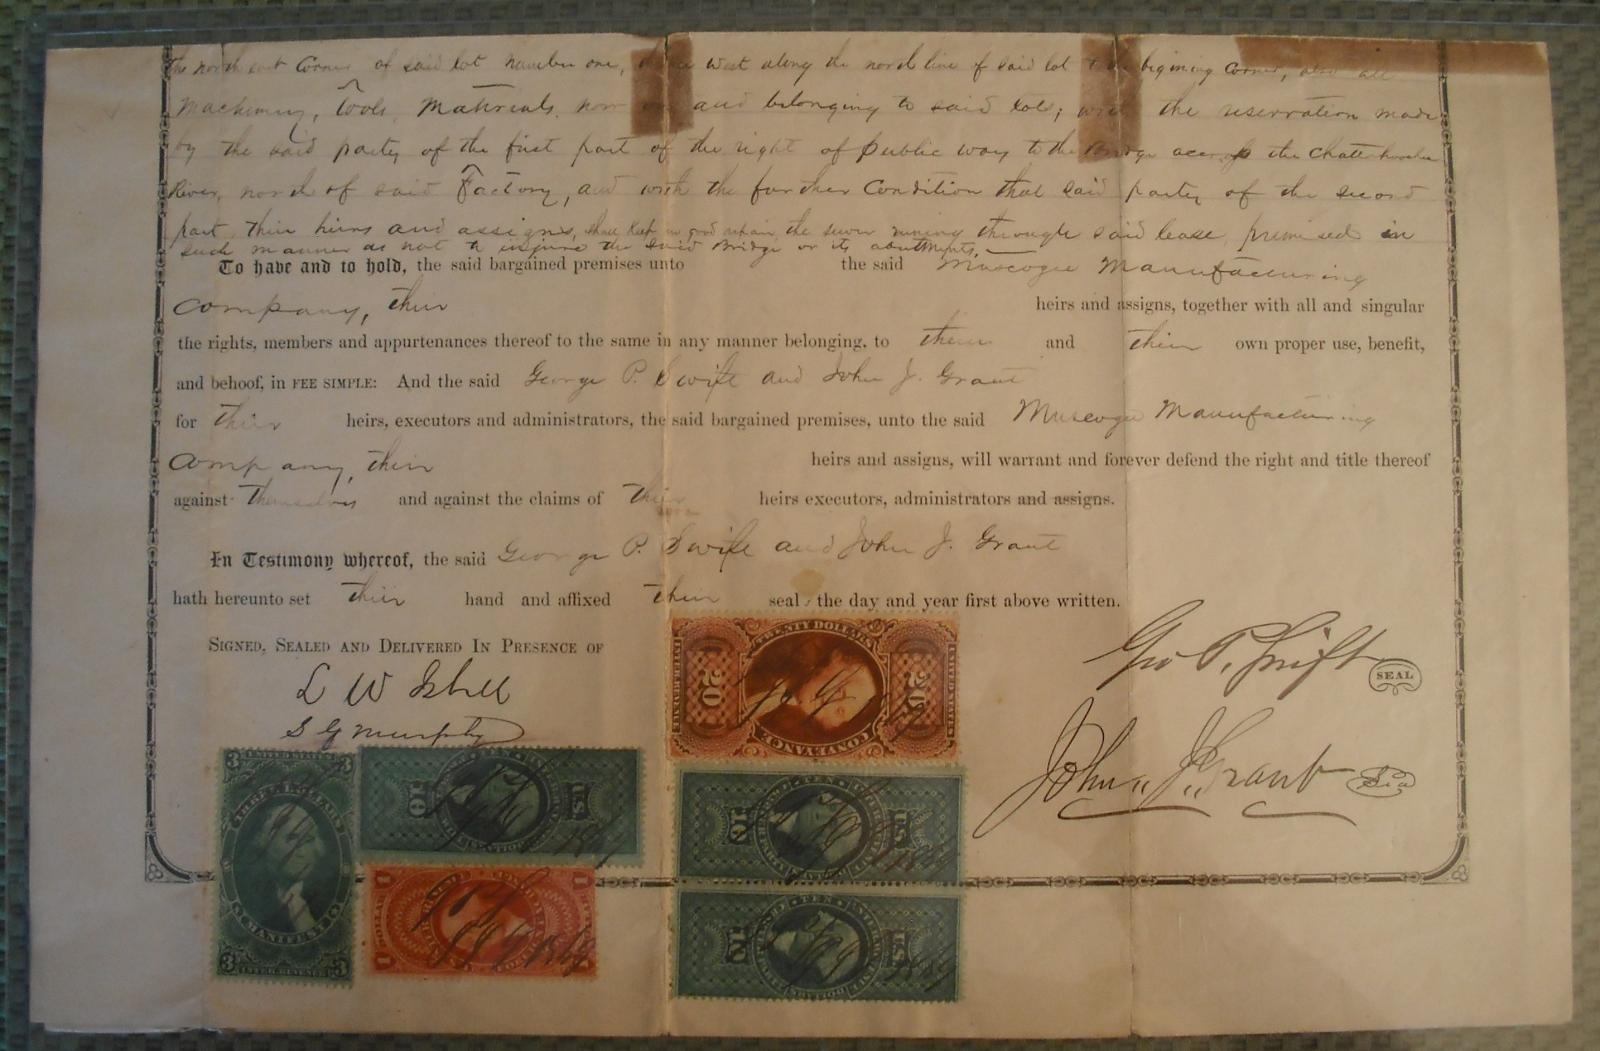 the north east Corner of said lot number one, west along the north line of said lot to the begining corner, also all
Machinery, Tools, Materials, now on and belonging to said lot; with the reservation made
by the said party of the first part of the right of Public way to the Bridge across the Chattahoochee
River, north of said Factory, and with the further Condition that said party of the second
part, their heirs and assigns, shall keep in good repair the sewer runing through said lease premised in
such manner as not to injure the said Bridge or its abutments.
To have and to hold, the said bargained premises unto the said Muscogee Manufacturing
Company, their heirs and assigns, together with all and singular
the rights, members and appurtenances thereof to the same in any manner belonging, to them and their own proper use, benefit,
and behoof, in FEE SIMPLE: And the said George P. Swift and John J. Grant
for their heirs, executors and administrators, the said bargained premises, unto the said Muscogee Manufacturing
Company, their heirs and assigns, will warrant and forever defend the right and title thereof
against themselves and against the claims of their heirs executors, administrators and assigns.
In Testimony whereof, the said George P. Swift and John J. Grant
hath hereunto set their hand and affixed their seal, the day and year first above written.
SIGNED, SEALED AND DELIVERED IN PRESENCE OF
L W Isbell
S G Murphy
Geo P. Swift SEAL
John J. Grant
TWENTY DOLLARS
20 20
CONVEYANCE
UNITED STATES
3 3
THREE DOLLARS
MANIFEST
3 3
INTER. REVENUE
10 TEN DOLLARS U.S.
1 1
10 TEN DOLLARS U.S.
10 TEN DOLLARS U.S.